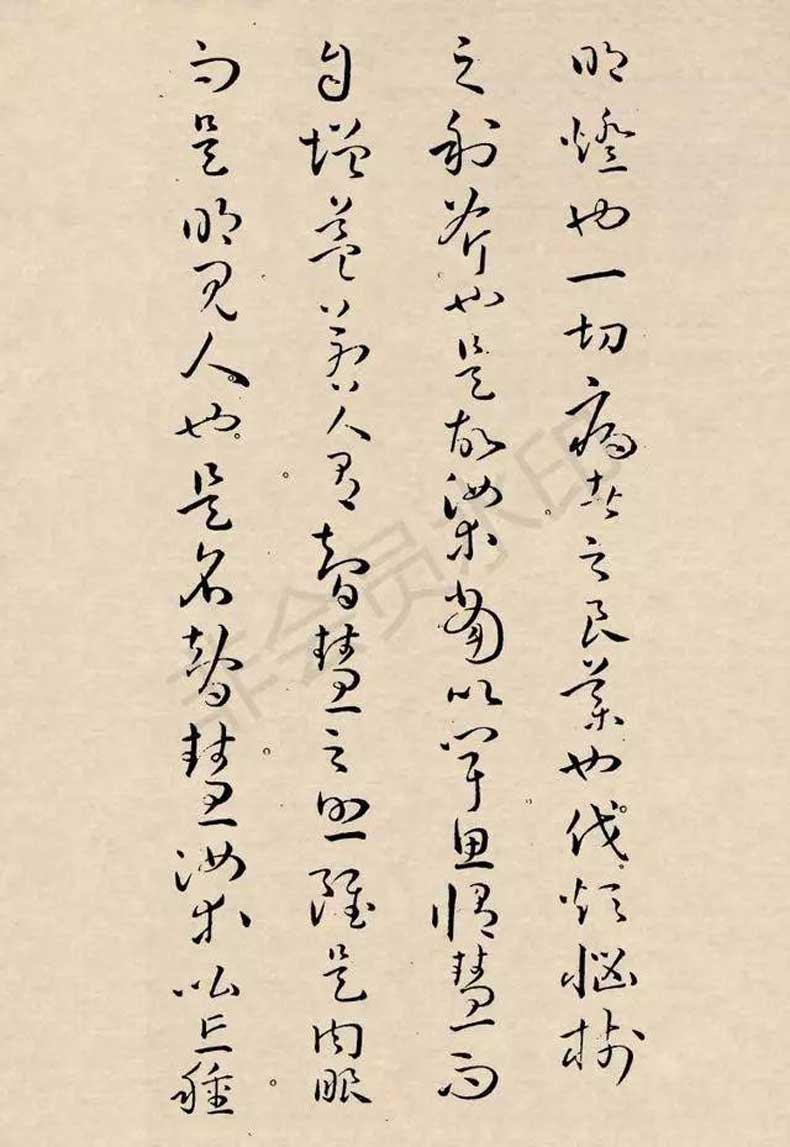 明燈也一切病者之良藥也伐煩惱樹
之利斧也是故汝等當以聞思修慧而
自增益若人有智慧之照雖是肉眼
而是明見人也是名智慧汝等比丘種
非会员水印